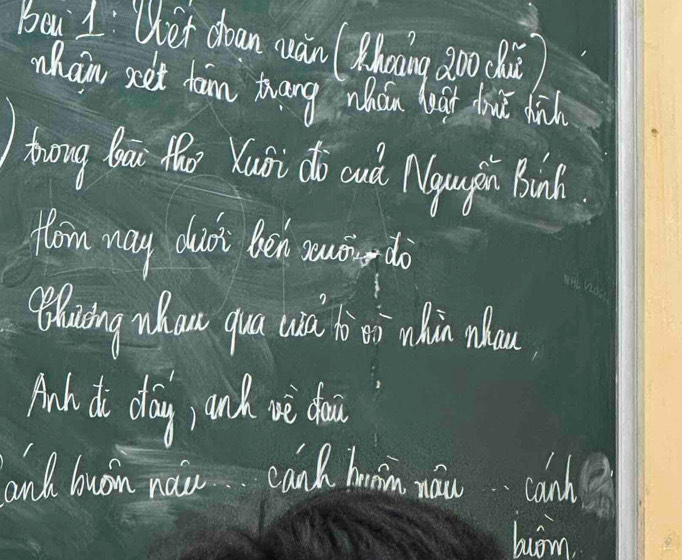 Bài 1: Viết đoạn văn (khoảng 200 chữ)
nhận xét tâm trạng nhân vật trữ tình
trong bài thơ Xuôi đò của Nguyễn Bính.
Hôm nay dưới bến xuôi đò
Thương nhau qua cửa tò vò nhìn nhau
Anh đi đấy, anh về đâu
Cánh buồm nâu... cánh buồm nâu... cánh
buồm.